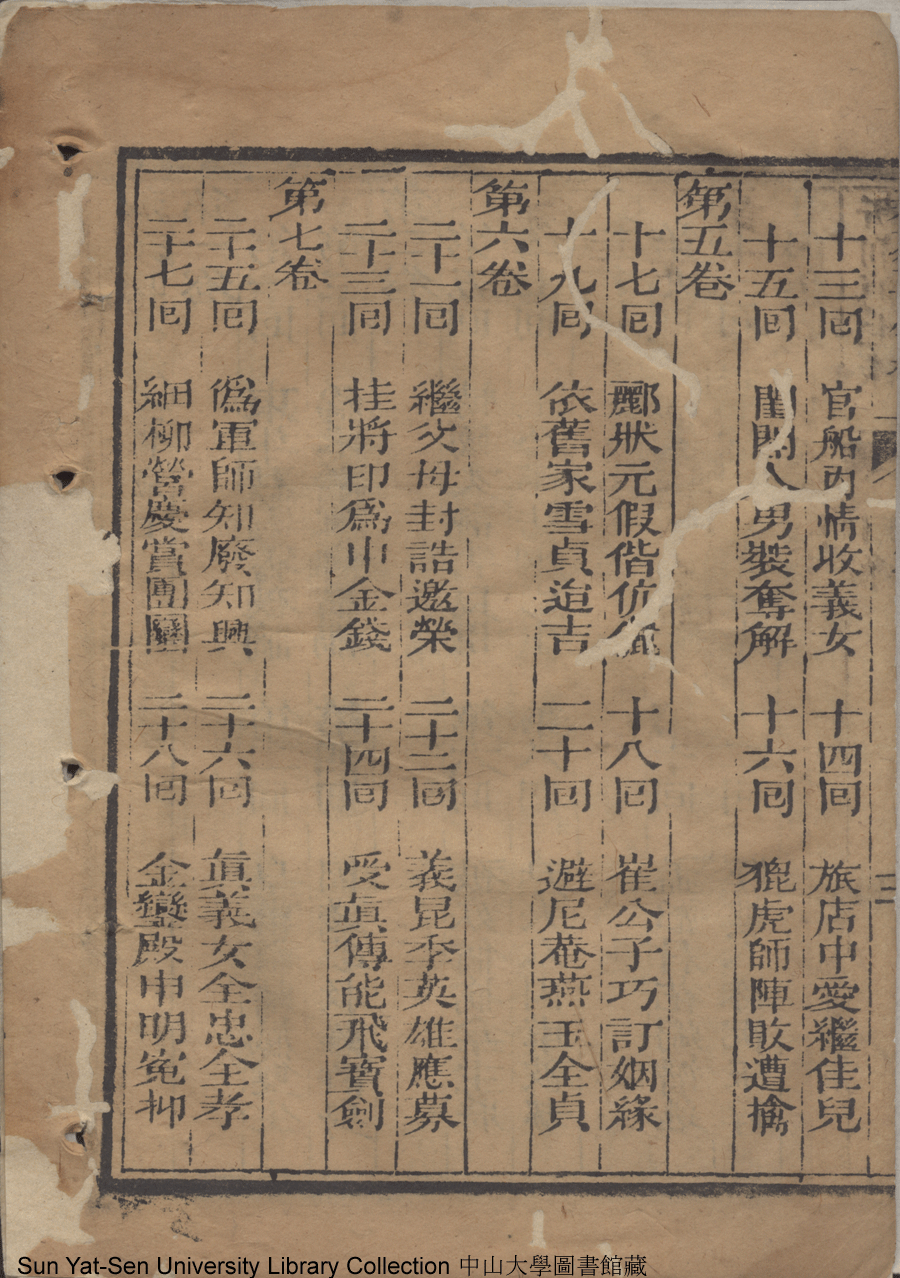 十三回 官船內情收義女 十四回 旅店中愛繼佳兒
十五回 閨閣人男裝奪解 十六回 貔虎師陣敗遭擒
第五卷
十七回 酈狀元假偕伉儷 十八回 崔公子巧訂姻緣
十九回 依舊家雪貞迨吉 二十回 避尼菴燕玉全貞
第六卷
二十一回 繼父母封誥邀榮 二十二回 義昆季英雄應募
二十三回 桂將印爲卜金錢 二十四回 受眞傳能飛寳劍
第七卷
二十五回 爲軍師知廢知興 二十六回 眞義女全忠全孝
二十七回 細柳營慶賞團圞 二十八回 金鑾殿申明寃抑
Sun Yat-Sen University Library Collection 中山大學圖書館藏